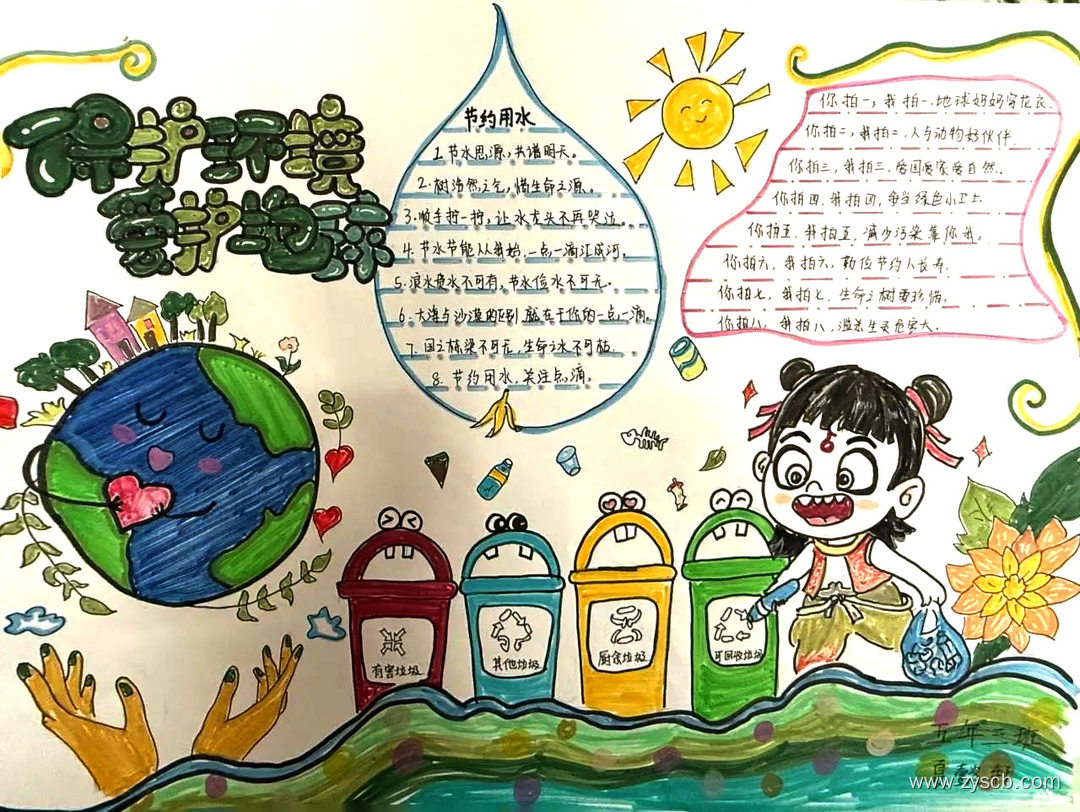 保护环境
爱护地球
节约用水
1.节水思源，共谱明天。
2.树浩然之气，惜生命之源。
3.顺手拧一拧，让水龙头不再哭泣。
4.节水节能从我始，一点一滴汇成河。
5.浪水费水不可有，节水俭水不可无。
6.大海与沙漠的区别就在于你的一点一滴。
7.国之栋梁不可无，生命之水不可枯
8.节约用水，关注点滴。
你拍一，我拍一，地球妈妈穿花衣.
你拍二，我拍二，人与动物好伙伴.
你拍三，我拍三，爱国爱家爱自然.
你拍四，我拍四，争当绿色小卫士
你拍五，我拍五，减少污染靠你我，
你拍六，我拍六，勤俭节约人长寿.
你拍七，我拍七，生命之树要珍惜.
你拍八，我拍八，滥杀生灵危害大.
有害垃圾
其他垃圾
厨余垃圾
可回收垃圾
五年三班
夏
www.zyscb.com